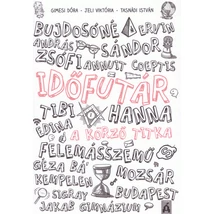 GIMESI DÓRA • JELI VIKTÓRIA • TASNÁDI ISTVÁN
BUJDOSÓNÉ ERVIN
ANDRÁS SÁNDOR
ZSÓFI ANNUIT COEPTIS
IDŐFUTÁR
TIBI HANNA
EDINA A KÖRZŐ TITKA
FELEMÁSSZEMŰ
GÉZA BÁ' MOZSÁR
KEMPELEN
SIGRAY BUDAPEST
JAKAB GIMNÁZIUM